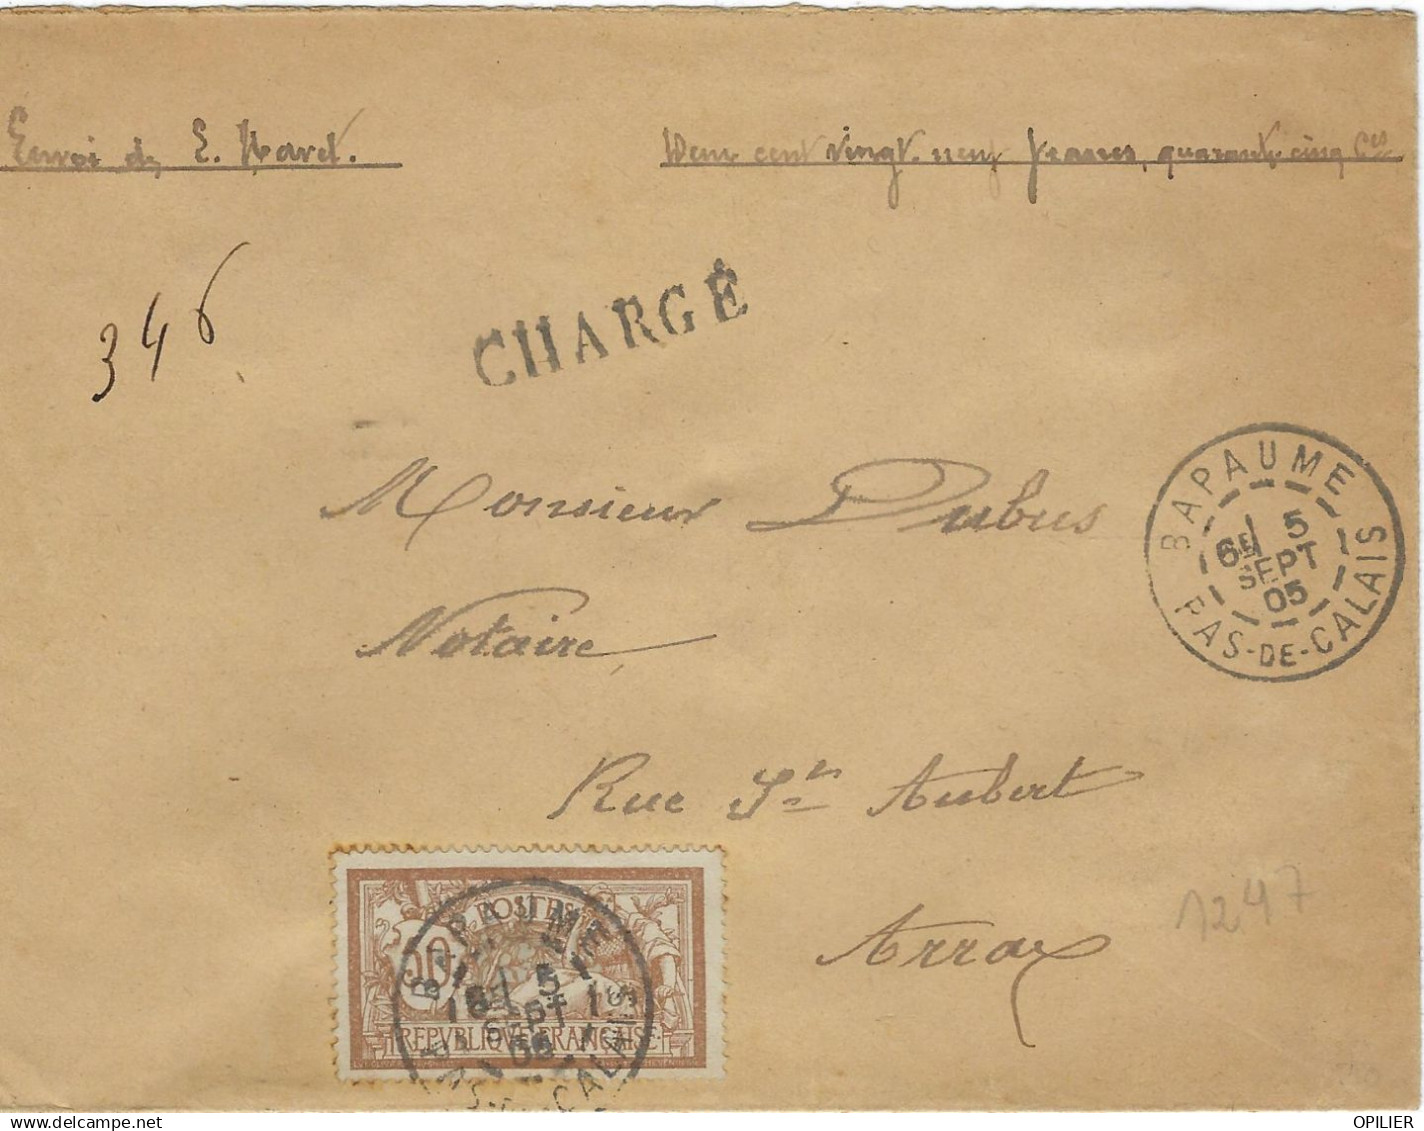 Envoi de E. Havet.
Deux cent vingt-neuf francs, quarante-cinq Ces
346
CHARGÉ
Monsieur Dubus
Notaire
Rue St Aubert
Arras
BAPAUME
5
SEPT
05
PAS-DE-CALAIS
1247
POSTES
50
REPVBLIQVE FRANÇAISE
BAPAUME
5
SEPT
05
PAS-DE-CALAIS
www.delcampe.net
OPILIER